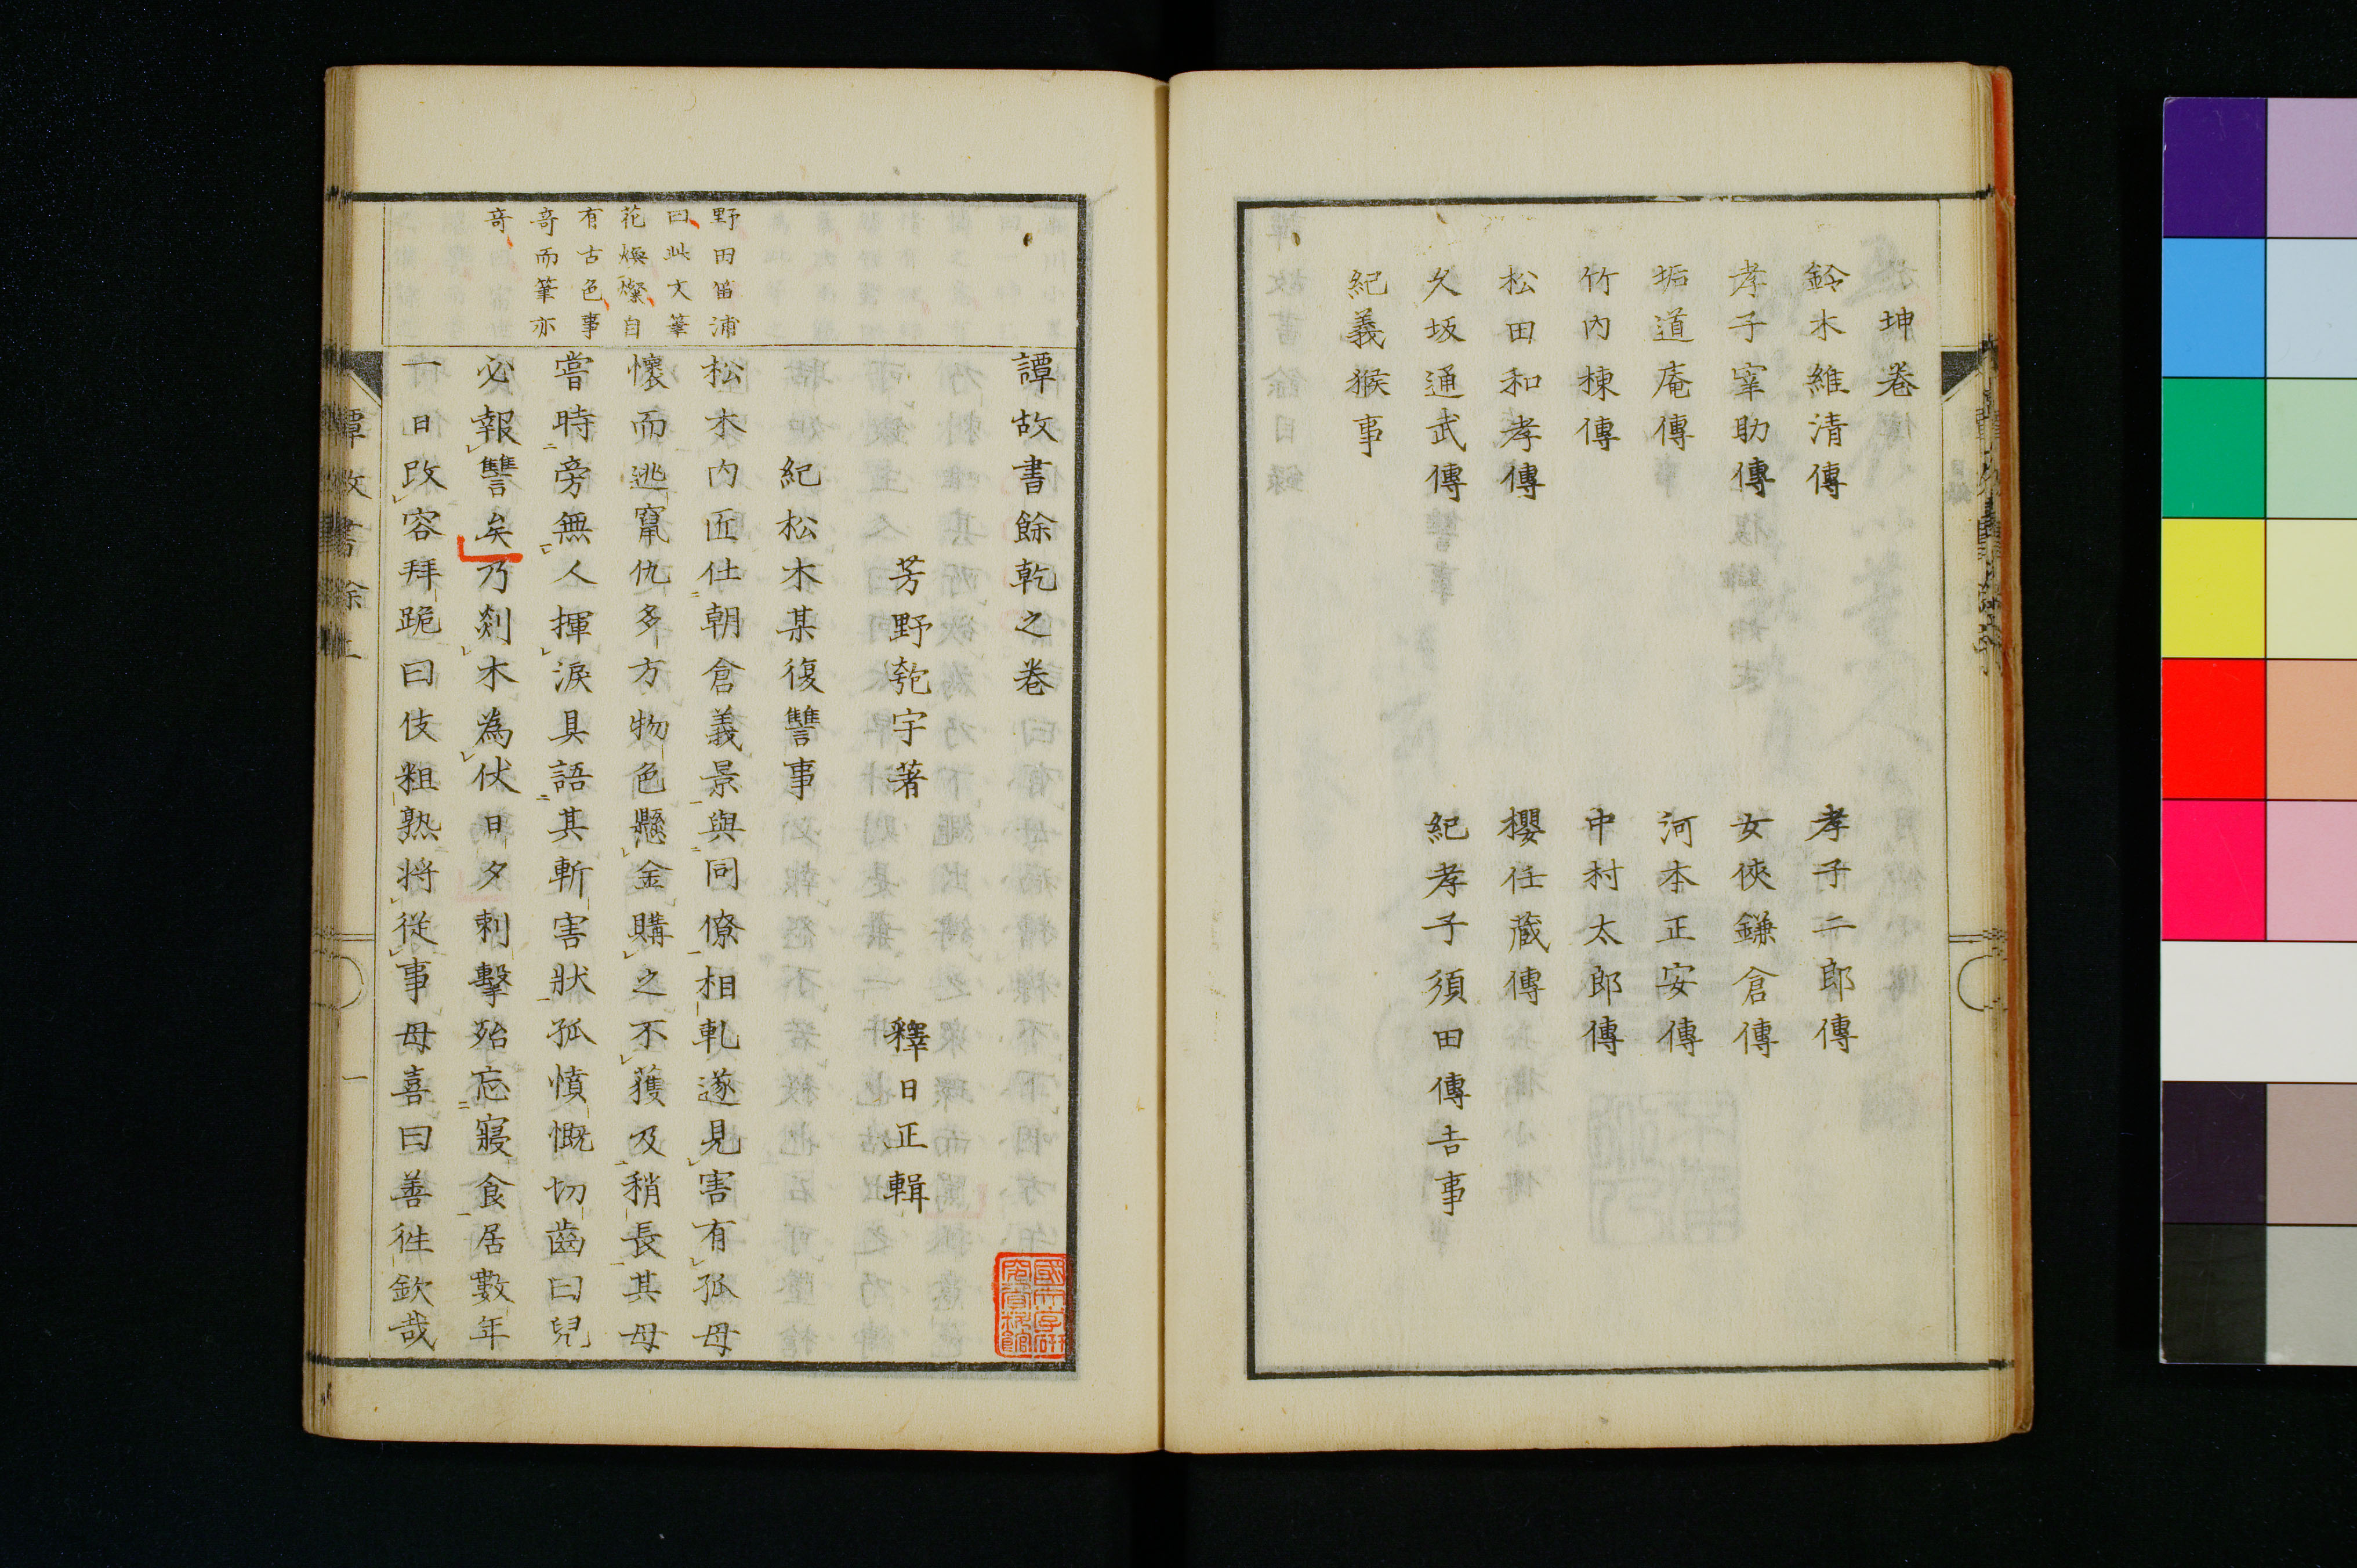 坤卷
鈴木維清傳
孝子二郎傳
孝子宰助傳
女俠鎌倉傳
垢道庵傳
河本正安傳
竹內棟傳
中村太郎傳
松田和孝傳
櫻任藏傳
久坂通武傳
紀孝子須田傳吉事
紀義猴事
譚故書餘乾之卷
芳野匏宇著
釋日正輯
紀松木某復讐事
野田笛浦
曰此文筆
花煥燦自
有古色事
奇而筆亦
奇
松木內匠仕朝倉義景與同僚相軋遂見害有孤母
懷而逃竄仇多方物色懸金購之不獲及稍長其母
嘗時旁無人揮淚具語其斬害狀孤憤慨切齒曰兒
必報讐矣乃剡木為仗日夕刺擊殆忘寢食居數年
一日改容拜跪曰伎粗熟將從事母喜曰善徃欽哉
譚故書餘上
一
國文學研
究資料館